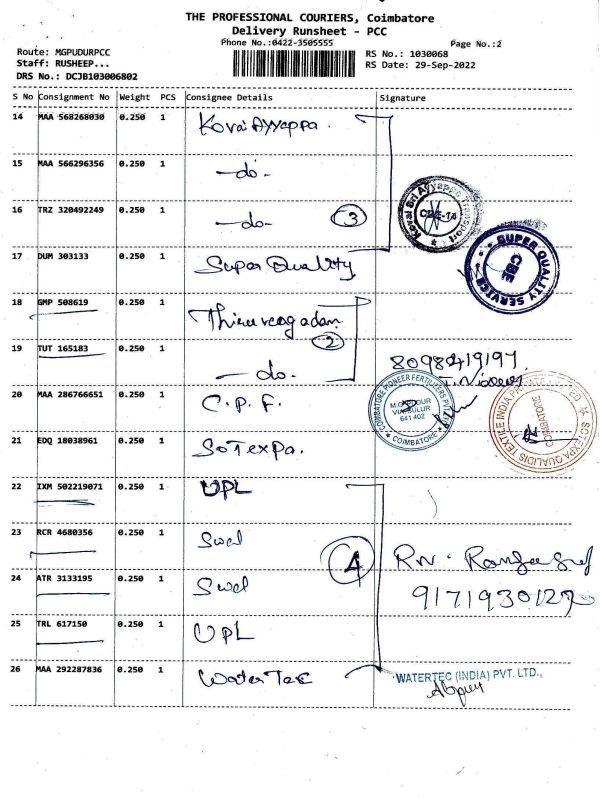 THE PROFESSIONAL COURIERS, Coimbatore
Delivery Runsheet - PCC
Phone No.:0422-3505555
Page No.:2
Route: MGPUDURPCC
RS No.: 1030068
Staff: RUSHEEP...
RS Date: 29-Sep-2022
DRS No.: DCJB103006802
S No Consignment No Weight PCS Consignee Details Signature
14 MAA 568268030 0.250 1 Kovai Ayyappa.
15 MAA 566296356 0.250 1 -do-
16 TRZ 320492249 0.250 1 -do- 3
Kovai Sri Ayyappa Transport
CBE-14
17 DUM 303133 0.250 1 Super Quality
SUPER QUALITY SERVICE
CBE
18 GMP 508619 0.250 1 Thiruvengadam
2
19 TUT 165183 0.250 1 -do-
8098419197
20 MAA 286766651 0.250 1 C.P.F.
COIMBATORE PIONEER FERTILIZERS PVT LTD
641 402
COIMBATORE
21 EDQ 18038961 0.250 1 SoTexpa.
SOTEXPA QUALIDIS TEXTILE INDIA PRIVATE LIMITED
COIMBATORE
22 IXM 502219071 0.250 1 UPL
23 RCR 4680356 0.250 1 Swal
4
24 ATR 3133195 0.250 1 Swal
25 TRL 617150 0.250 1 UPL
26 MAA 292287836 0.250 1 WaterTec
WATERTEC (INDIA) PVT. LTD.,